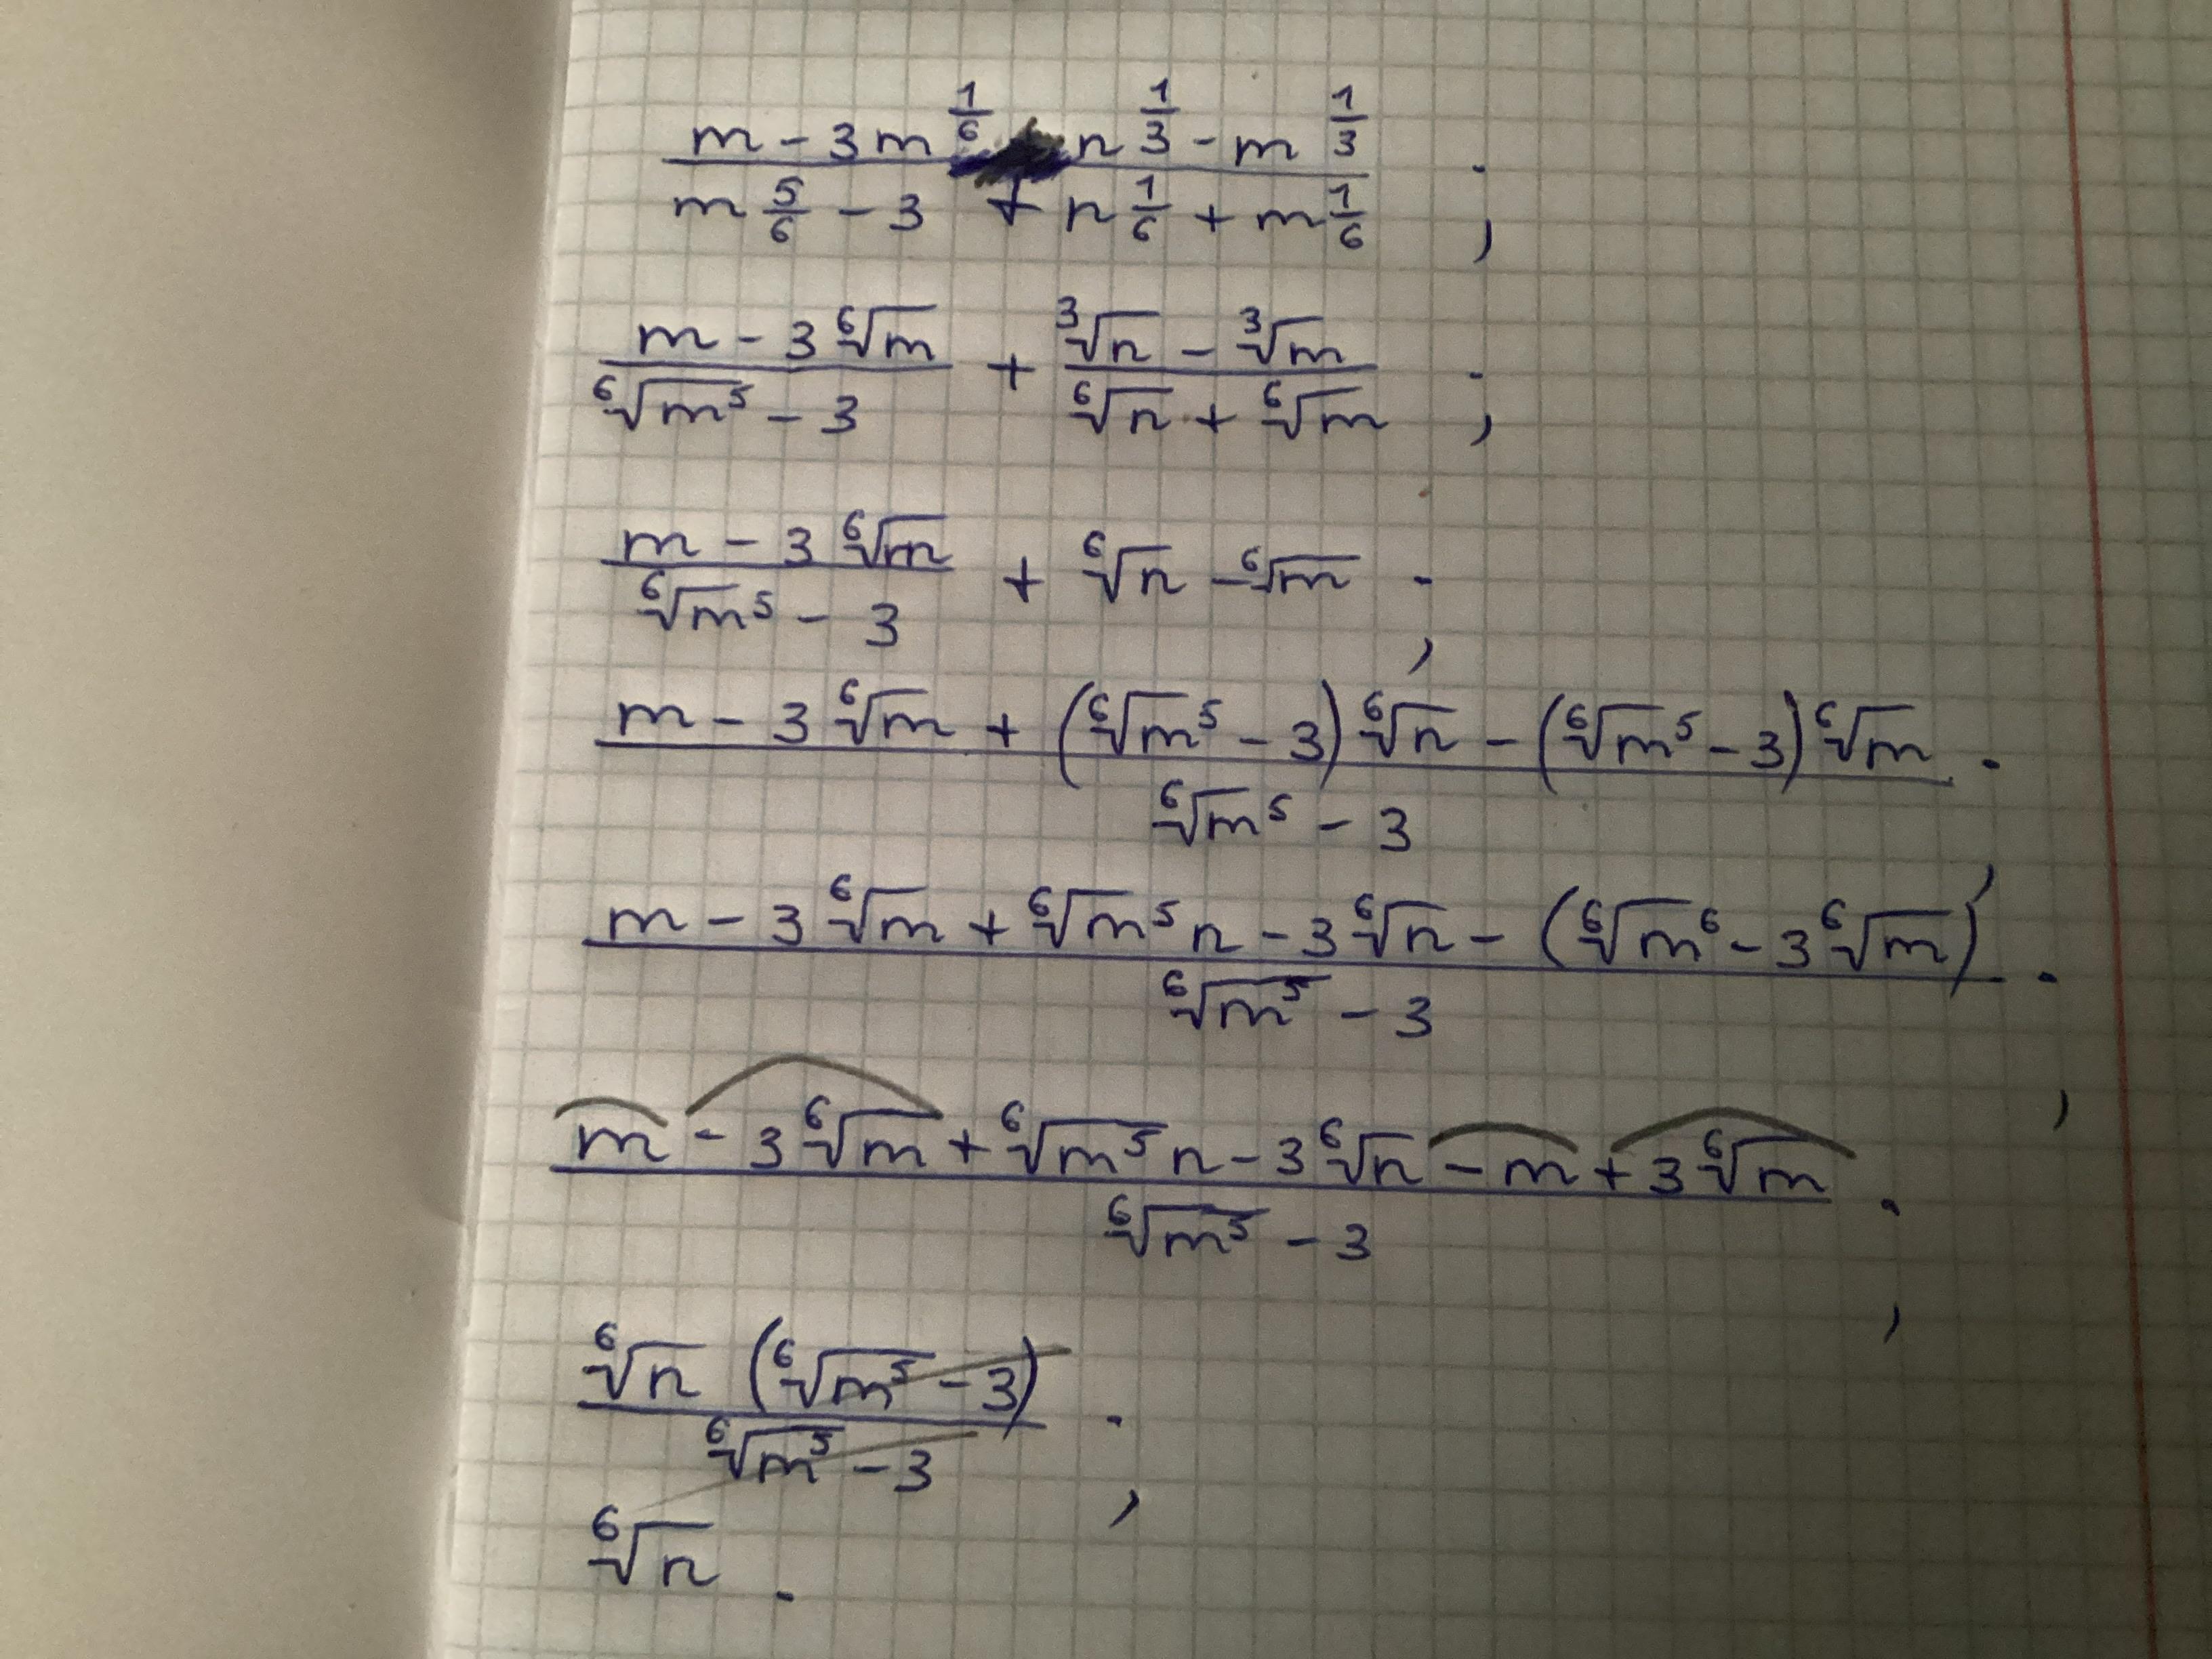 m - 3m^(1/6) n^(1/3) - m^(1/3)
m^(5/6) - 3 + n^(1/6) + m^(1/6) ;
m - 3⁶√m + ³√n - ³√m
⁶√m⁵ - 3 ⁶√n + ⁶√m ;
m - 3⁶√m + ⁶√n - ⁶√m ;
⁶√m⁵ - 3
m - 3⁶√m + (⁶√m⁵ - 3)⁶√n - (⁶√m⁵ - 3)⁶√m ;
⁶√m⁵ - 3
m - 3⁶√m + ⁶√m⁵n - 3⁶√n - (⁶√m⁶ - 3⁶√m) ;
⁶√m⁵ - 3
m - 3⁶√m + ⁶√m⁵n - 3⁶√n - m + 3⁶√m ;
⁶√m⁵ - 3
⁶√n (⁶√m⁵ - 3) ;
⁶√m⁵ - 3
⁶√n .